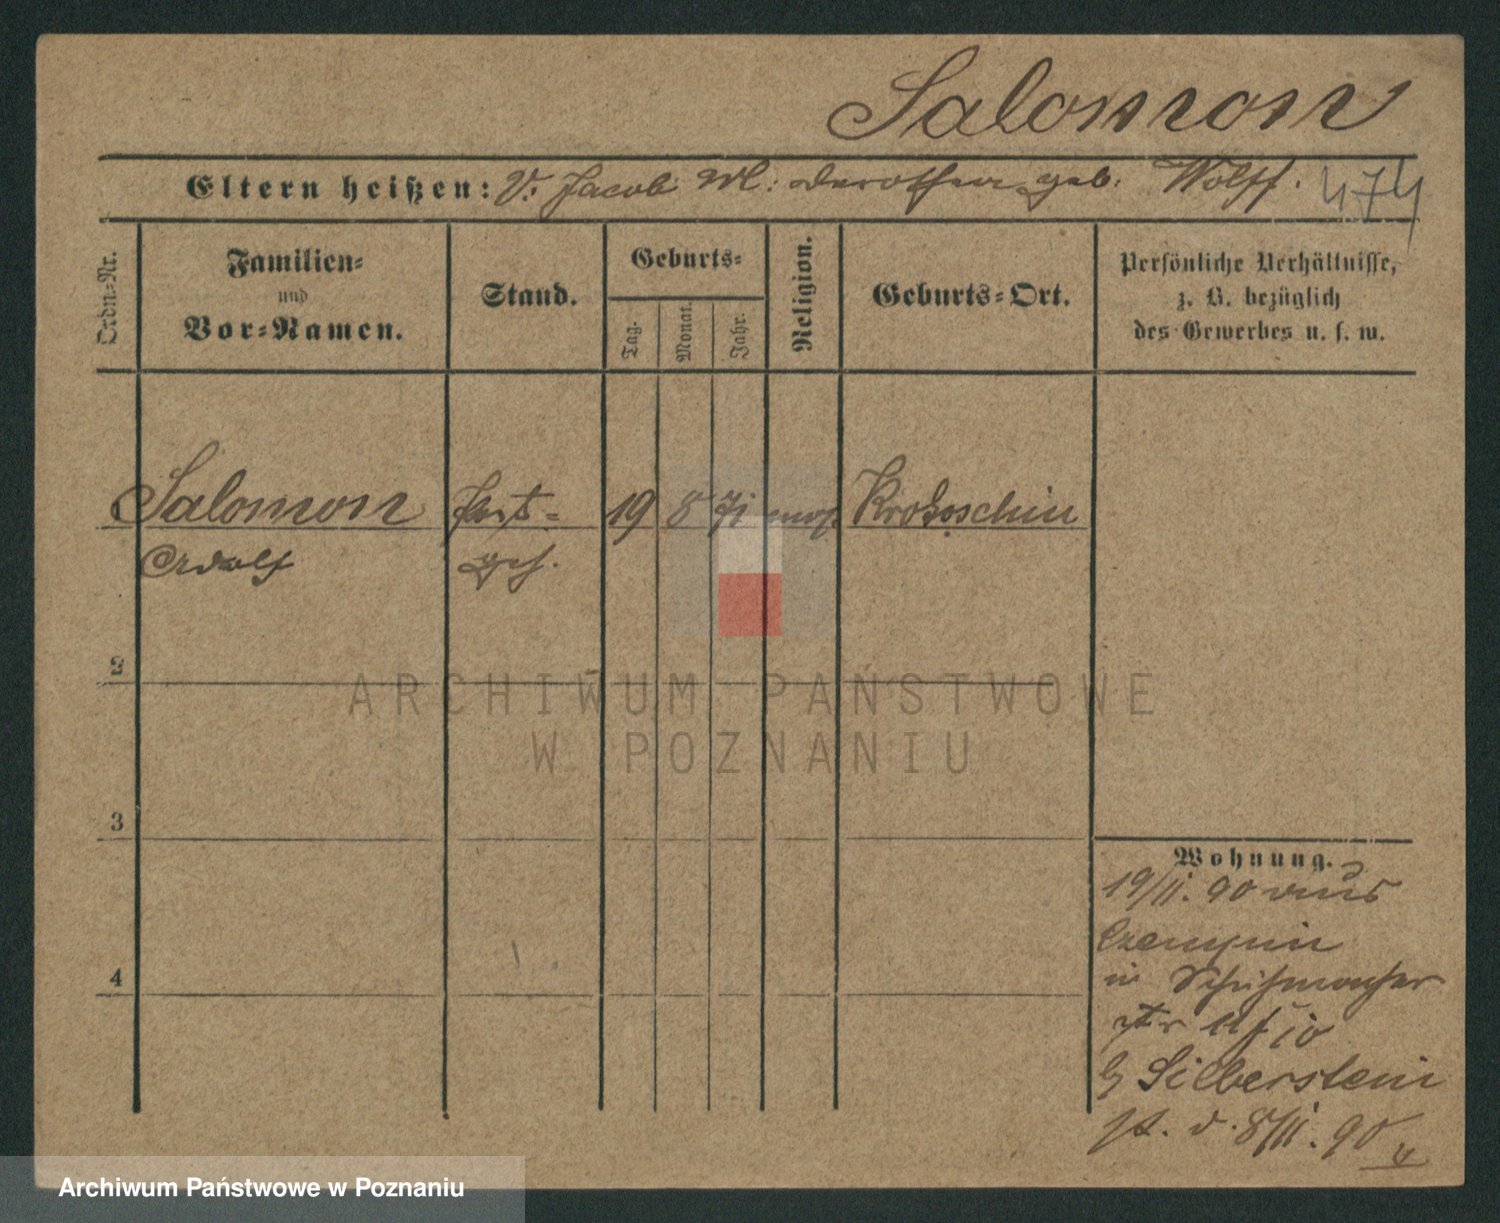 Salomon
Eltern heißen: V: Jacob M: Dorothea geb. Wolff. 474
Ordn-Nr.
Familien-
und
Vor-Namen.
Stand.
Geburts-
Tag.
Monat.
Jahr.
Religion.
Geburts-Ort.
Persönliche Verhältnisse,
z. B. bezüglich
des Gewerbes u. s. w.
Salomon 19 8 71 mos. Krotoschin
Adolf
2
3
4
Wohnung.
19/11. 90 aus
Czempin
in Schuhmacher
str
b Silberstein
d. 8/11. 90
ARCHIWUM PAŃSTWOWE
W POZNANIU
Archiwum Państwowe w Poznaniu